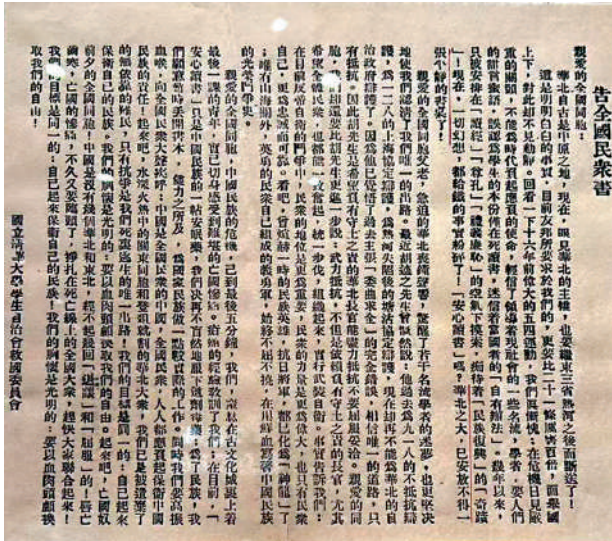 告全國民眾書
親愛的全國同胞：
華北自古是中原之地，現在，眼見華北的主權，也要繼東三省熱河之後而斷送了！
這是明明白白的事實，目前友邦所要求於我們的，更要比二十一條厲害百倍，而舉國
上下，對此却不見動靜。回看一下十六年前偉大的五四運動，我們真慚愧：在危機日見嚴
重的關頭，不能為時代負起應負的使命，輕信了領導着現社會的一些名流，學者，要人們
的甜言蜜語，誤認為學生的本份僅在死讀書，迷信着當國者的「自有辦法」。幾年以來，
只被安排在「讀經」「尊孔」「禮義廉恥」的空氣下摸索，痴待着「民族復興」的「奇蹟
」！現在，一切幻想，都給鐵的事實粉碎了！「安心讀書」嗎？華北之大，已安放不得一
張平靜的書桌了！
親愛的全國同胞父老，急迫的華北喪鐘聲響，驚醒了若干名流學者的迷夢，也更堅決
地使我們認清了我們唯一的出路。最近胡適之先生曾慨然說：他過去為九一八的不抵抗辯
護，為一二八的上海協定辯護，為熱河失陷後的塘沽協定辯護，現在却再不能為華北的自
治政府辯護了。因為他已覺悟了過去主張「委曲求全」的完全錯誤，相信唯一的道路，只
有抵抗。因此胡先生是希望負有守土之責的華北長官能盡力抵抗不要屈服妥協。親愛的同
胞，我們却還要比胡先生更進一步說：武力抵抗，不但是依賴負有守土之責的長官，尤其
希望全體民眾，也都能一致奮起，統一步伐，組織起來，實行武裝自衛。事實告訴我們：
在目前反帝自衛的鬥爭中，民眾的地位是更為重要，民眾的力量是更為偉大，也只有民眾
自己，更為忠誠而可靠。看吧，曾煊赫一時的民族英雄，抗日將軍，都已化為「神龍」了
；唯有山海關外，英勇的民眾自己組成的義勇軍，始終不屈不撓，在用鮮血寫著中國民族
的光榮鬥爭史。
親愛的全國同胞，中國民族的危機，已到最後五分鐘，我們，窒息在古文化城裏上着
最後一課的青年，實已切身感受到難堪的亡國慘痛。疮痛的經驗教訓了我們：在目前，「
安心讀書」只是中國民族的一帖安眠藥，我們決再不盲然地服下這劑毒藥；為了民族，我
們願意暫時丟開書本，儘力之所及，為國家民族做一點較實際的工作。同時我們要高振
血喉，向全國民眾大聲疾呼：中國是全國民眾的，全國民眾，人人都應負起保衛中國
民族的責任！起來吧，水深火熱中的關東同胞和登俎就割的華北大眾，我們已是被遺棄了
的無依靠的難民，只有抗爭是我們死裏逃生的唯一出路！我們的目標是同一的：自己起來
保衛自己的民族，我們的胸懷是光明的：要以血肉頭顱換取我們的自由。起來吧，亡國奴
前夕的全國同胞！中國是沒有幾個華北和東北，經不起幾回「退讓」和「屈服」的！唇亡
齒寒，亡國的慘痛，不久又要臨頭了，掙扎在死亡線上的全國大眾，趕快大家聯合起來！
我們的目標是同一的：自己起來保衛自己的民族！我們的胸懷是光明的：要以血肉頭顱換
取我們的自由！
國立清華大學學生自治會救國委員會